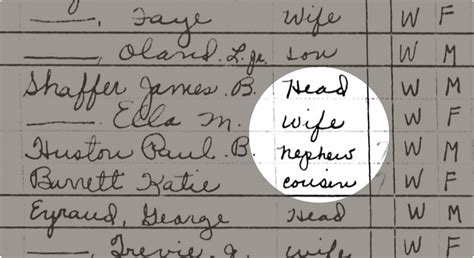 ——, Faye Wife W F
——, Oland L. Jr. Son W M
Shaffer James B. Head W M
——. Ella M. Wife W F
Huston Paul B. nephew W M
Burnett Katie cousin W F
Eyraud, George Head W M
——, Trevie, J. wife W F